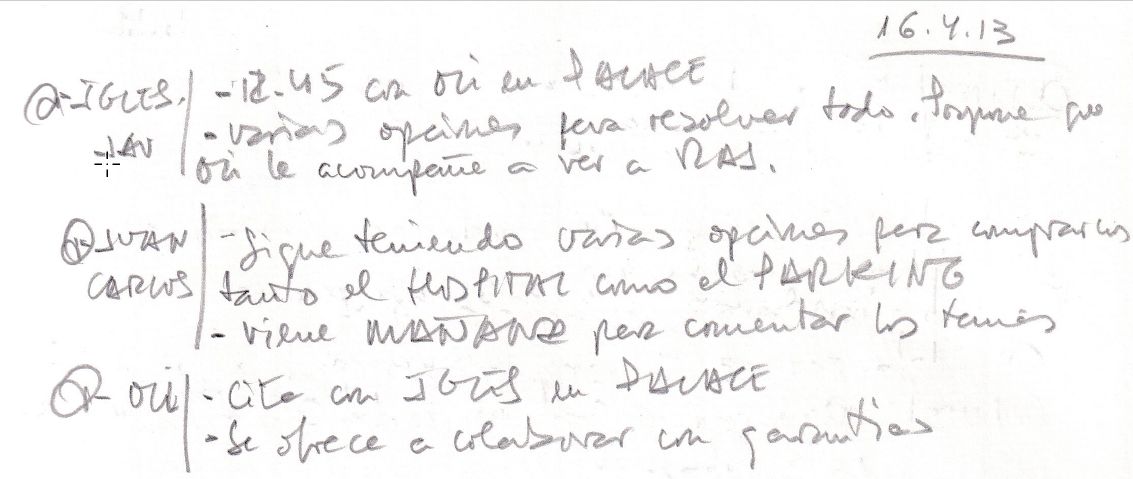 16.4.13
-IGLES. | -12-45 con Oli en PALACE
-JAV | -varias opciones para resolver todo. Propone que
Oli le acompañe a ver a RAS.
JUAN | -Sigue teniendo varias opciones para comprarlos
CARLOS | tanto el HOSPITAL como el PARKING
-viene MAÑANA para comentar los temas
- OLI | -Cita con IGLES en PALACE
-Se ofrece a colaborar con garantias